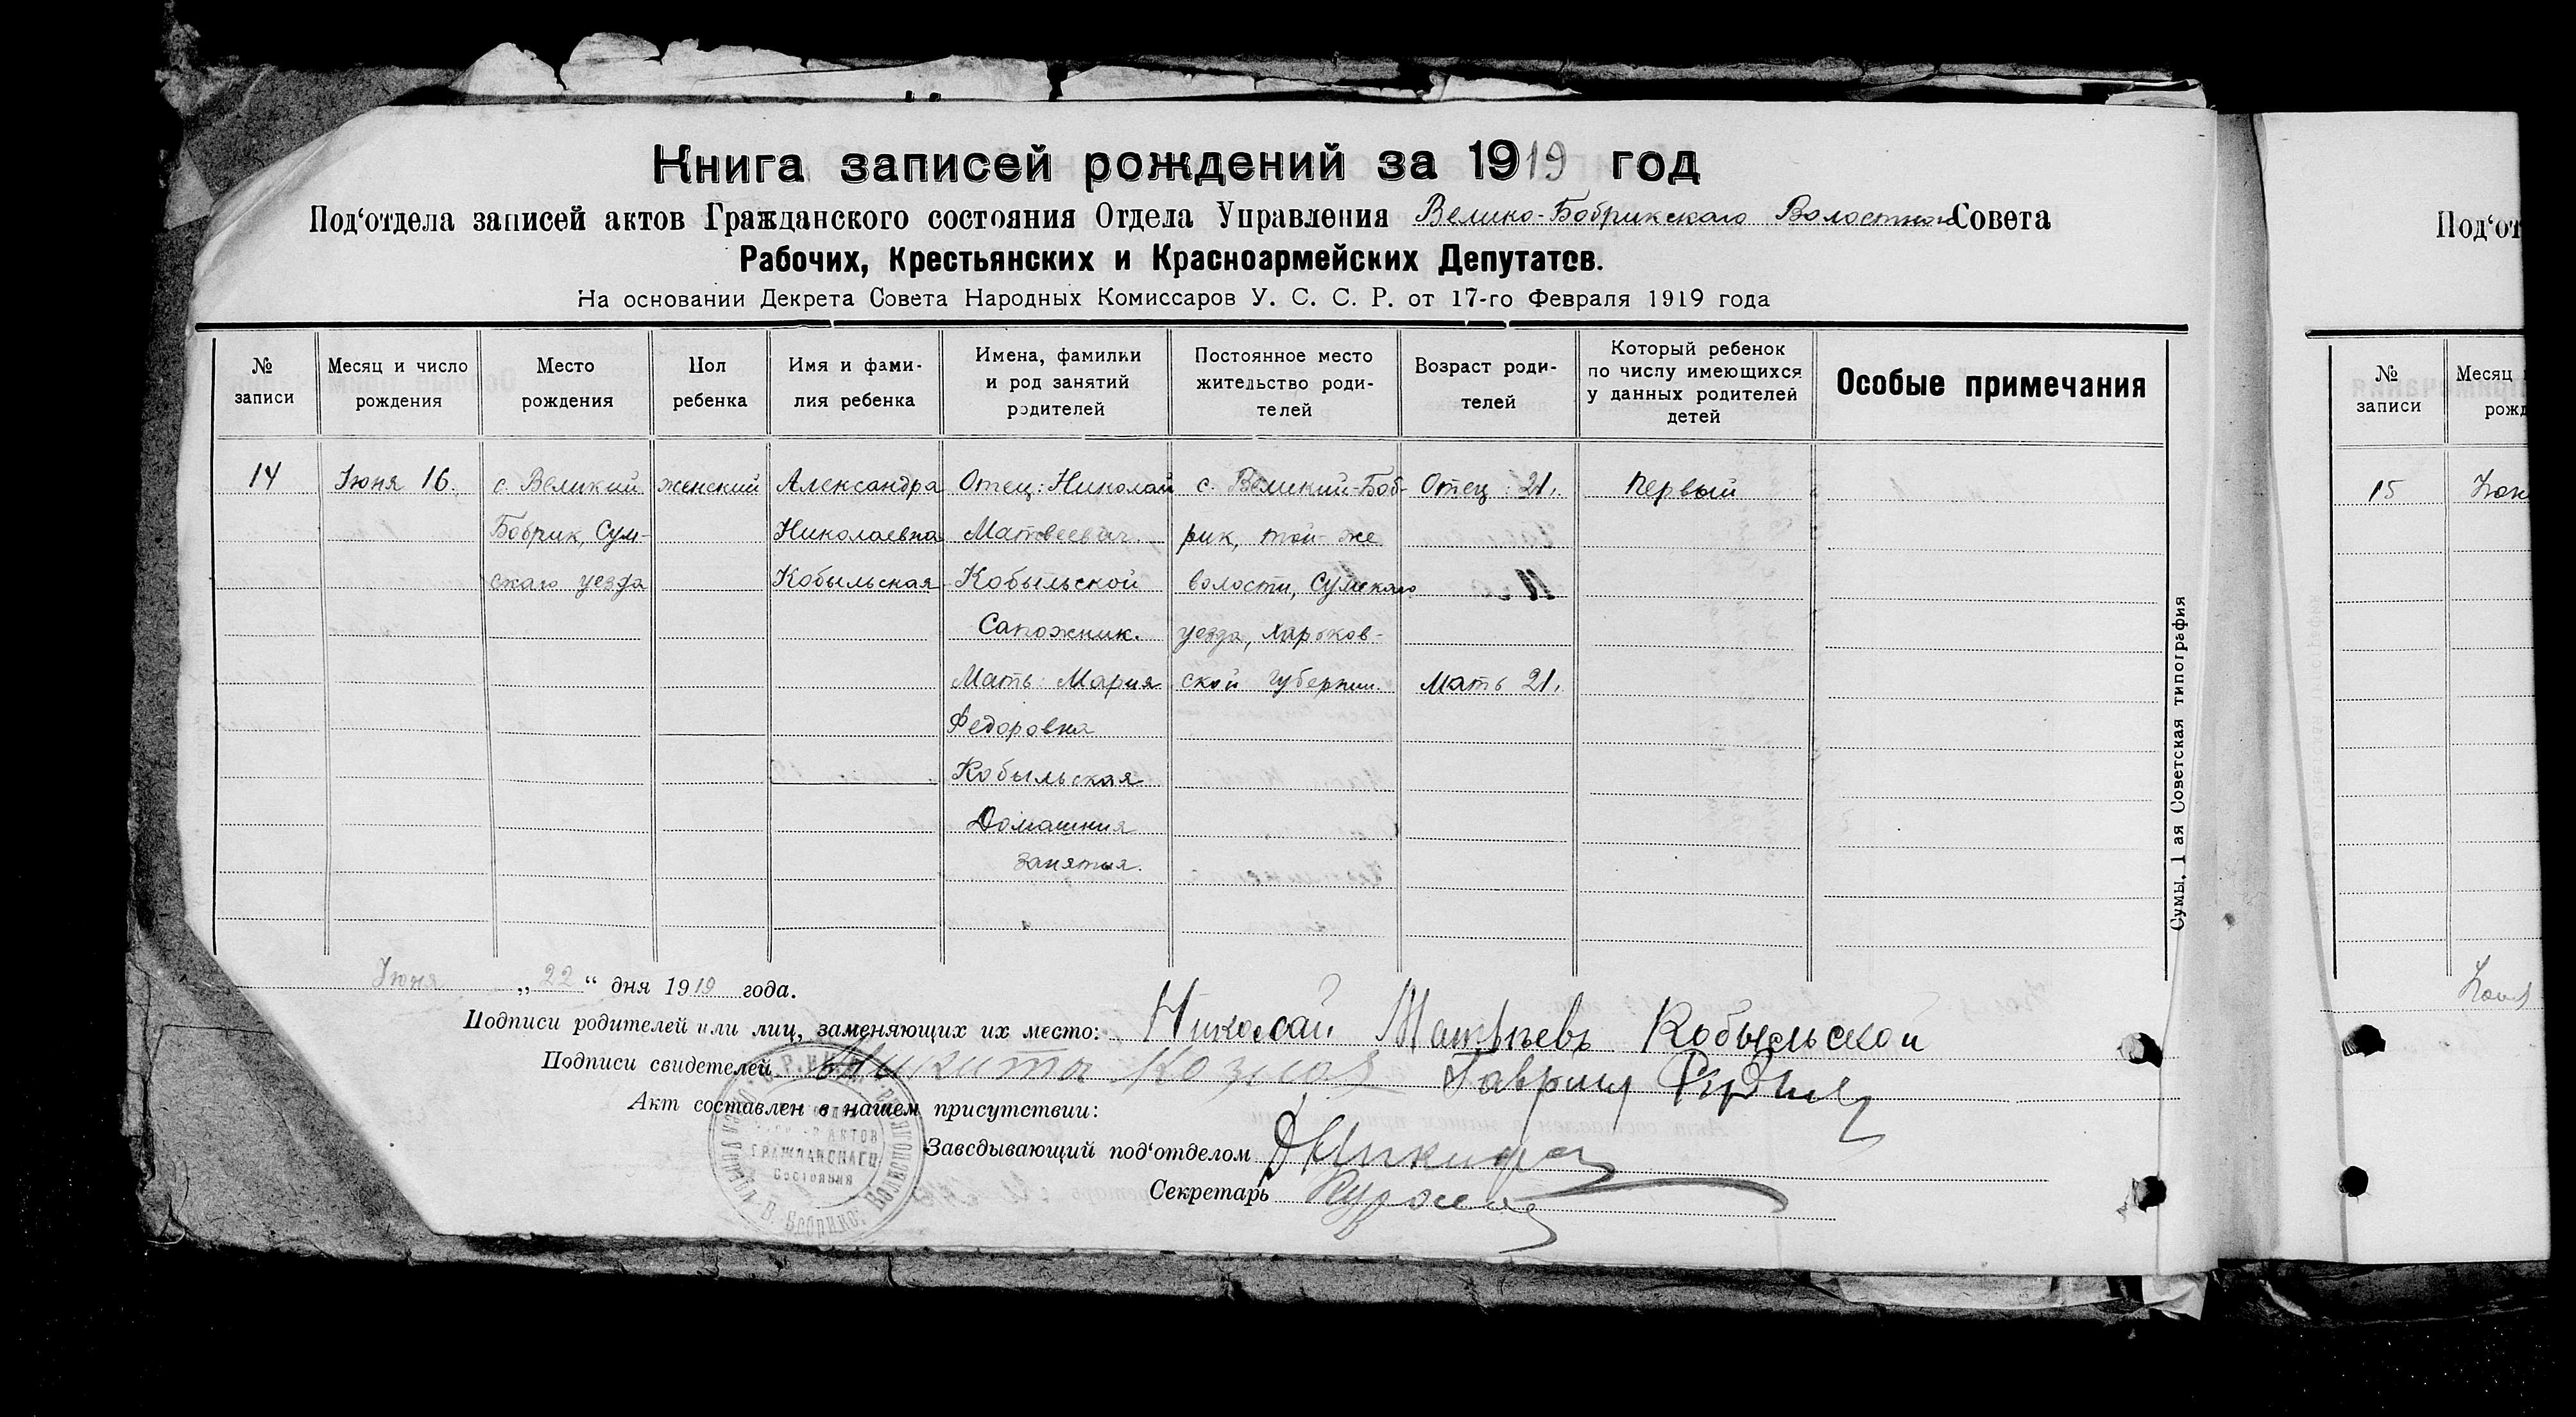 Книга записей рождений за 1919 год
Под‘отдела записей актов Гражданского состояния Отдела Управления Велико-Бобрикскаго Волостного Совета
Рабочих, Крестьянских и Красноармейских Депутатов.
На основании Декрета Совета Народных Комиссаров У. С. С. Р. от 17-го Февраля 1919 года
№ записи
Месяц и число рождения
Место рождения
Пол ребенка
Имя и фами-
лия ребенка
Имена, фамилии
и род занятий
родителей
Постоянное место
жительство роди-
телей
Возраст роди-
телей
Который ребенок
по числу имеющихся
у данных родителей
детей
Особые примечания
14
Июня 16.
с. Великий
Бобрик, Сум-
скаго уезда
женский
Александра
Николаевна
Кобыльская
Отец: Николай
Матвеевич
Кобыльской
Сапожник.
Мать: Мария
Федоровна
Кобыльская
Домашния
занятия.
с. Великий-Боб-
рик, той-же
волости, Сумскаго
уезда, Харьков-
ской губернии.
Отец 21.
Мать 21.
Первый
Июня „22“ дня 1919 года.
Подписи родителей или лиц, заменяющих их место: Николай Матвьевъ Кобыльской
Подписи свидетелей Никита Гавриил
Акт составлен в нашем присутствии:
Заведывающий под‘отделом
Секретарь
АКТОВ
ГРАЖДАНСКАГО
Состояния
В.-Бобрик.
Сумы, 1 ая Советская типография
Под‘от
№
записи
Месяц
рожд
15